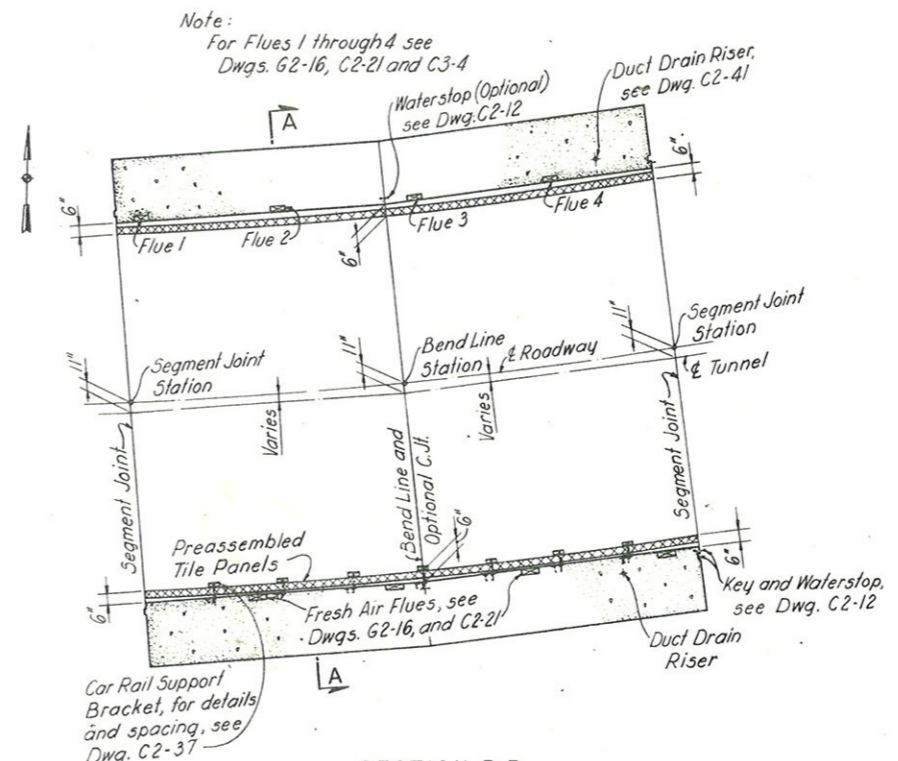 Note:
For Flues 1 through 4 see
Dwgs. G2-16, C2-21 and C3-4
Duct Drain Riser,
see Dwg. C2-41
Waterstop (Optional)
see Dwg. C2-12
A
6"
6"
Flue 1
Flue 2
6"
Flue 3
Flue 4
11"
Segment Joint
Station
11"
Segment Joint
Station
11"
Bend Line
Station
℄ Roadway
℄ Tunnel
Varies
Varies
Segment Joint
Bend Line and
Optional C.Jt.
Segment Joint
6"
6"
Preassembled
Tile Panels
6"
Fresh Air Flues, see
Dwgs. G2-16, and C2-21
Key and Waterstop,
see Dwg. C2-12
Duct Drain
Riser
A
Car Rail Support
Bracket, for details
and spacing, see
Dwg. C2-37